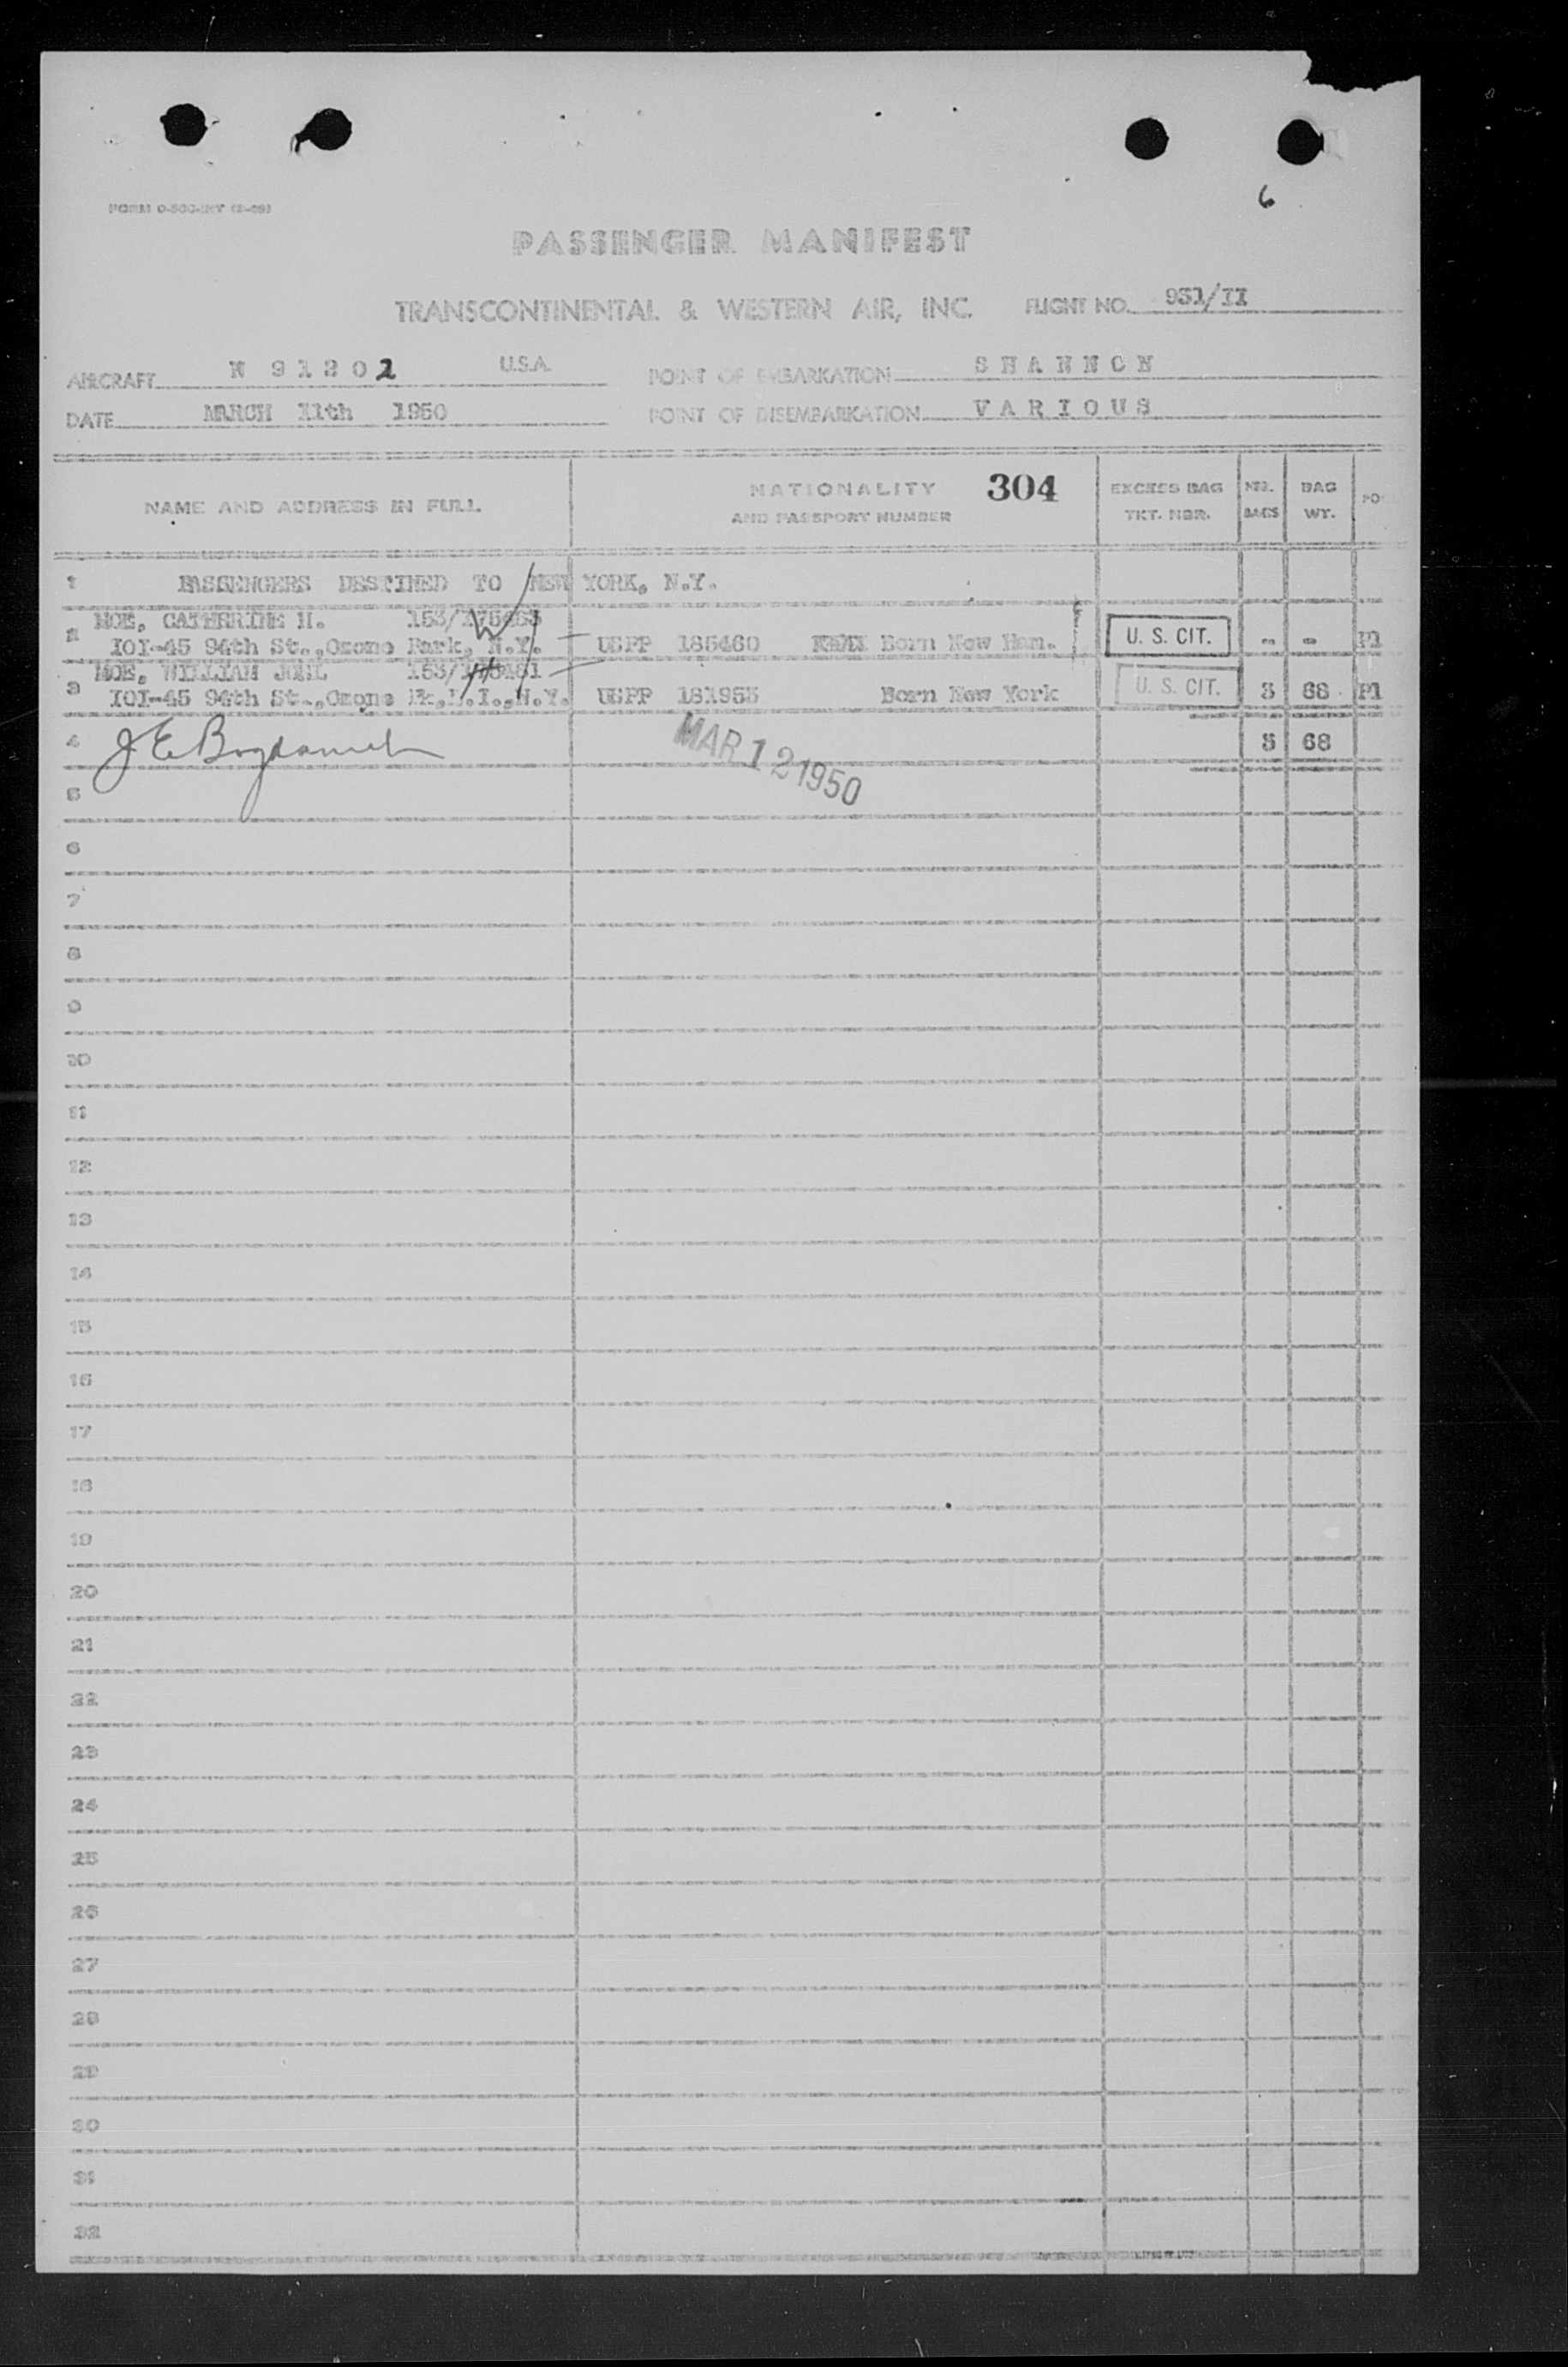 6
PASSENGER MANIFEST
TRANSCONTINENTAL & WESTERN AIR, INC. FLIGHT NO. 931/II
AIRCRAFT N 9 1 2 0 2 U.S.A. POINT OF EMBARKATION S H A N N O N
DATE MARCH 11th 1950 POINT OF DISEMBARKATION V A R I O U S
NAME AND ADDRESS IN FULL NATIONALITY AND PASSPORT NUMBER 304 EXCESS BAG TKT. NBR. NBR. BAGS BAG WT. PO
1 PASSENGERS DESTINED TO NEW YORK, N.Y.
2 MOE, CATHERINE H. 153/
IOI-45 94th St.,Ozone Park, N.Y. USPP 185460 Born New Ham. U. S. CIT. - - P1
3 MOE, WILLIAM JOEL 153/
IOI-45 94th St.,Ozone Pk,L.I.,N.Y. USPP 181955 Born New York U. S. CIT. 3 68 P1
4 3 68
MAR 12 1950
5
6
7
8
9
10
11
12
13
14
15
16
17
18
19
20
21
22
23
24
25
26
27
28
29
30
31
32